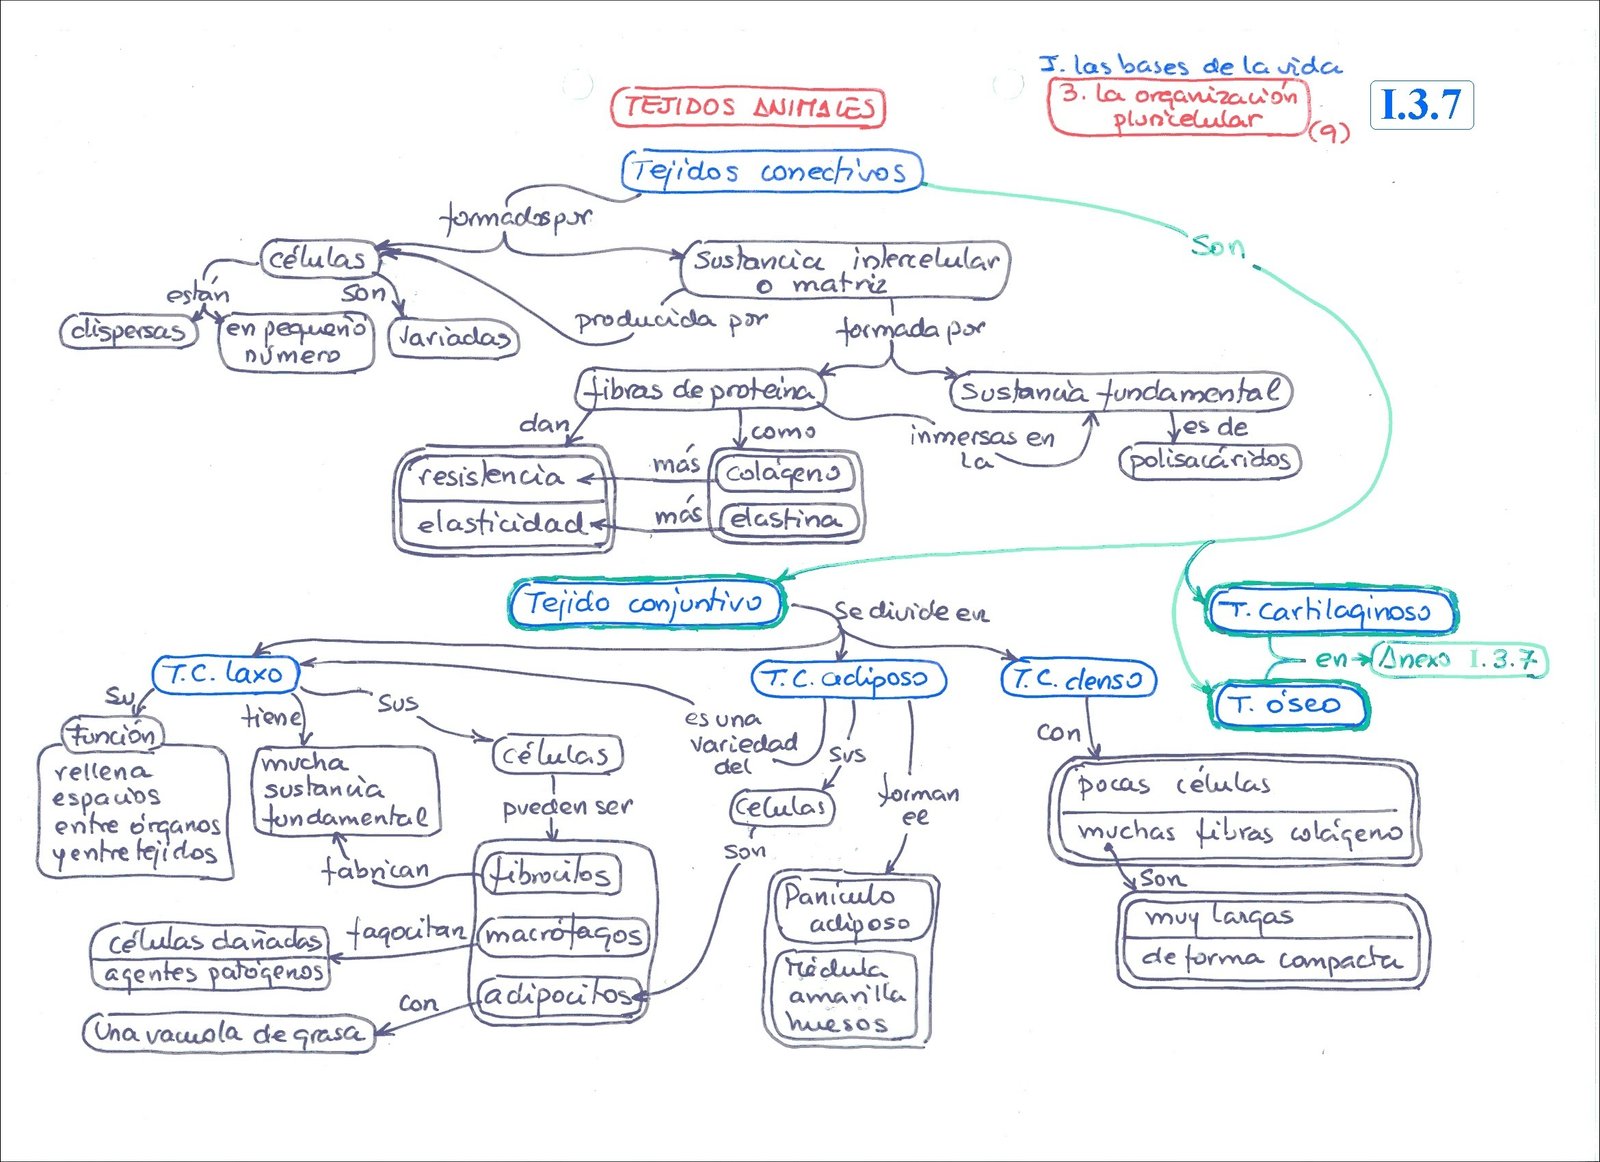 I. las bases de la vida
3. la organización
pluricelular
(9)
I.3.7
TEJIDOS ANIMALES
Tejidos conectivos
formados por
Son
células
Sustancia intercelular
o matriz
están
son
dispersas
en pequeño
número
variadas
producida por
formada por
fibras de proteína
Sustancia fundamental
dan
como
inmersas en
la
es de
polisacáridos
resistencia
más
colágeno
elasticidad
más
elastina
Tejido conjuntivo
se divide en
T. cartilaginoso
en
Anexo I.3.7
T. óseo
T.C. laxo
T.C. adiposo
T.C. denso
Su
tiene
Sus
es una
variedad
del
sus
forman
ee
con
función
rellena
espacios
entre órganos
y entre tejidos
mucha
sustancia
fundamental
células
pueden ser
células
son
pocas células
muchas fibras colágeno
son
muy largas
de forma compacta
fabrican
fibrocitos
fagocitan
macrófagos
células dañadas
agentes patógenos
con
adipocitos
Una vacuola de grasa
Panículo
adiposo
Médula
amarilla
huesos